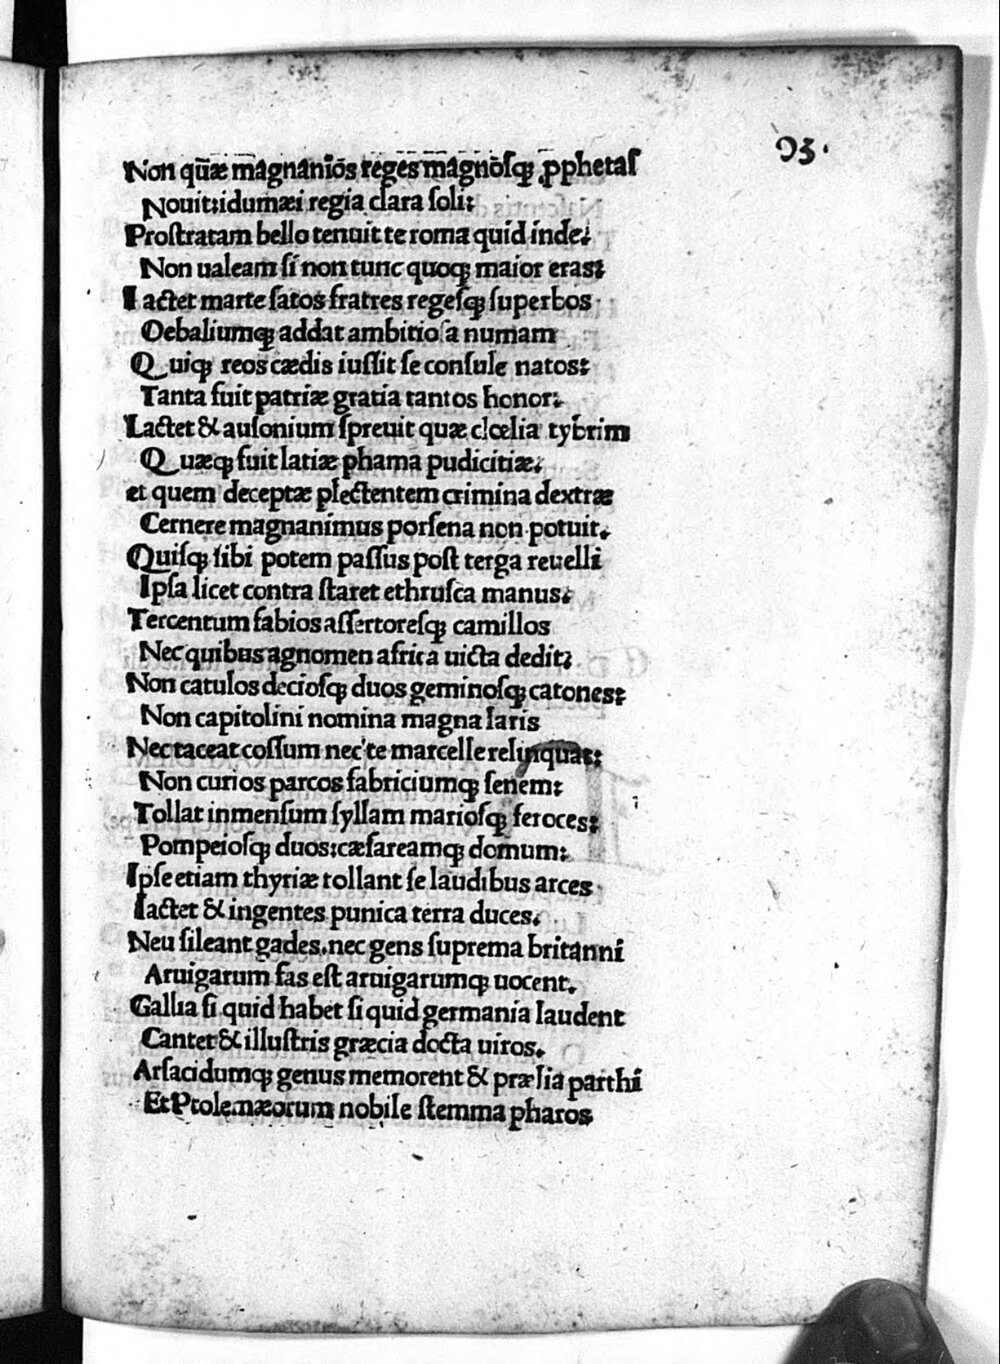 93.
Non quæ magnaniōs reges magnōsq; ꝓphetas
Nouit:idumæi regia clara soli:
Prostratam bello tenuit te roma quid inde:
Non ualeam si non tunc quoq; maior eras:
Iactet marte satos fratres regesq; superbos
Oebaliumq; addat ambitiosa numam
Quiq; reos cædis iussit se consule natos:
Tanta fuit patriæ gratia tantos honor:
Iactet & ausonium spreuit quæ clœlia tybrim
Quæq; fuit latiæ phama pudicitiæ:
et quem deceptæ plectentem crimina dextræ
Cernere magnanimus porsena non potuit.
Quisq; sibi potem passus post terga reuelli
Ipsa licet contra staret ethrusca manus:
Tercentum fabios assertoresq; camillos
Nec quibus agnomen africa uicta dedit:
Non catulos deciosq; duos geminosq; catones:
Non capitolini nomina magna laris
Nec taceat cossum nec te marcelle relinquat:
Non curios parcos fabriciumq; senem:
Tollat inmensum syllam mariosq; feroces:
Pompeiosq; duos:cæsareamq; domum:
Ipse etiam thyriæ tollant se laudibus arces
Iactet & ingentes punica terra duces.
Neu sileant gades.nec gens suprema britanni
Aruigarum fas est aruigarumq; uocent.
Gallia si quid habet si quid germania laudent
Cantet & illustris græcia docta uiros.
Arsacidumq; genus memorent & prælia parthi
Et Ptolemæorum nobile stemma pharos